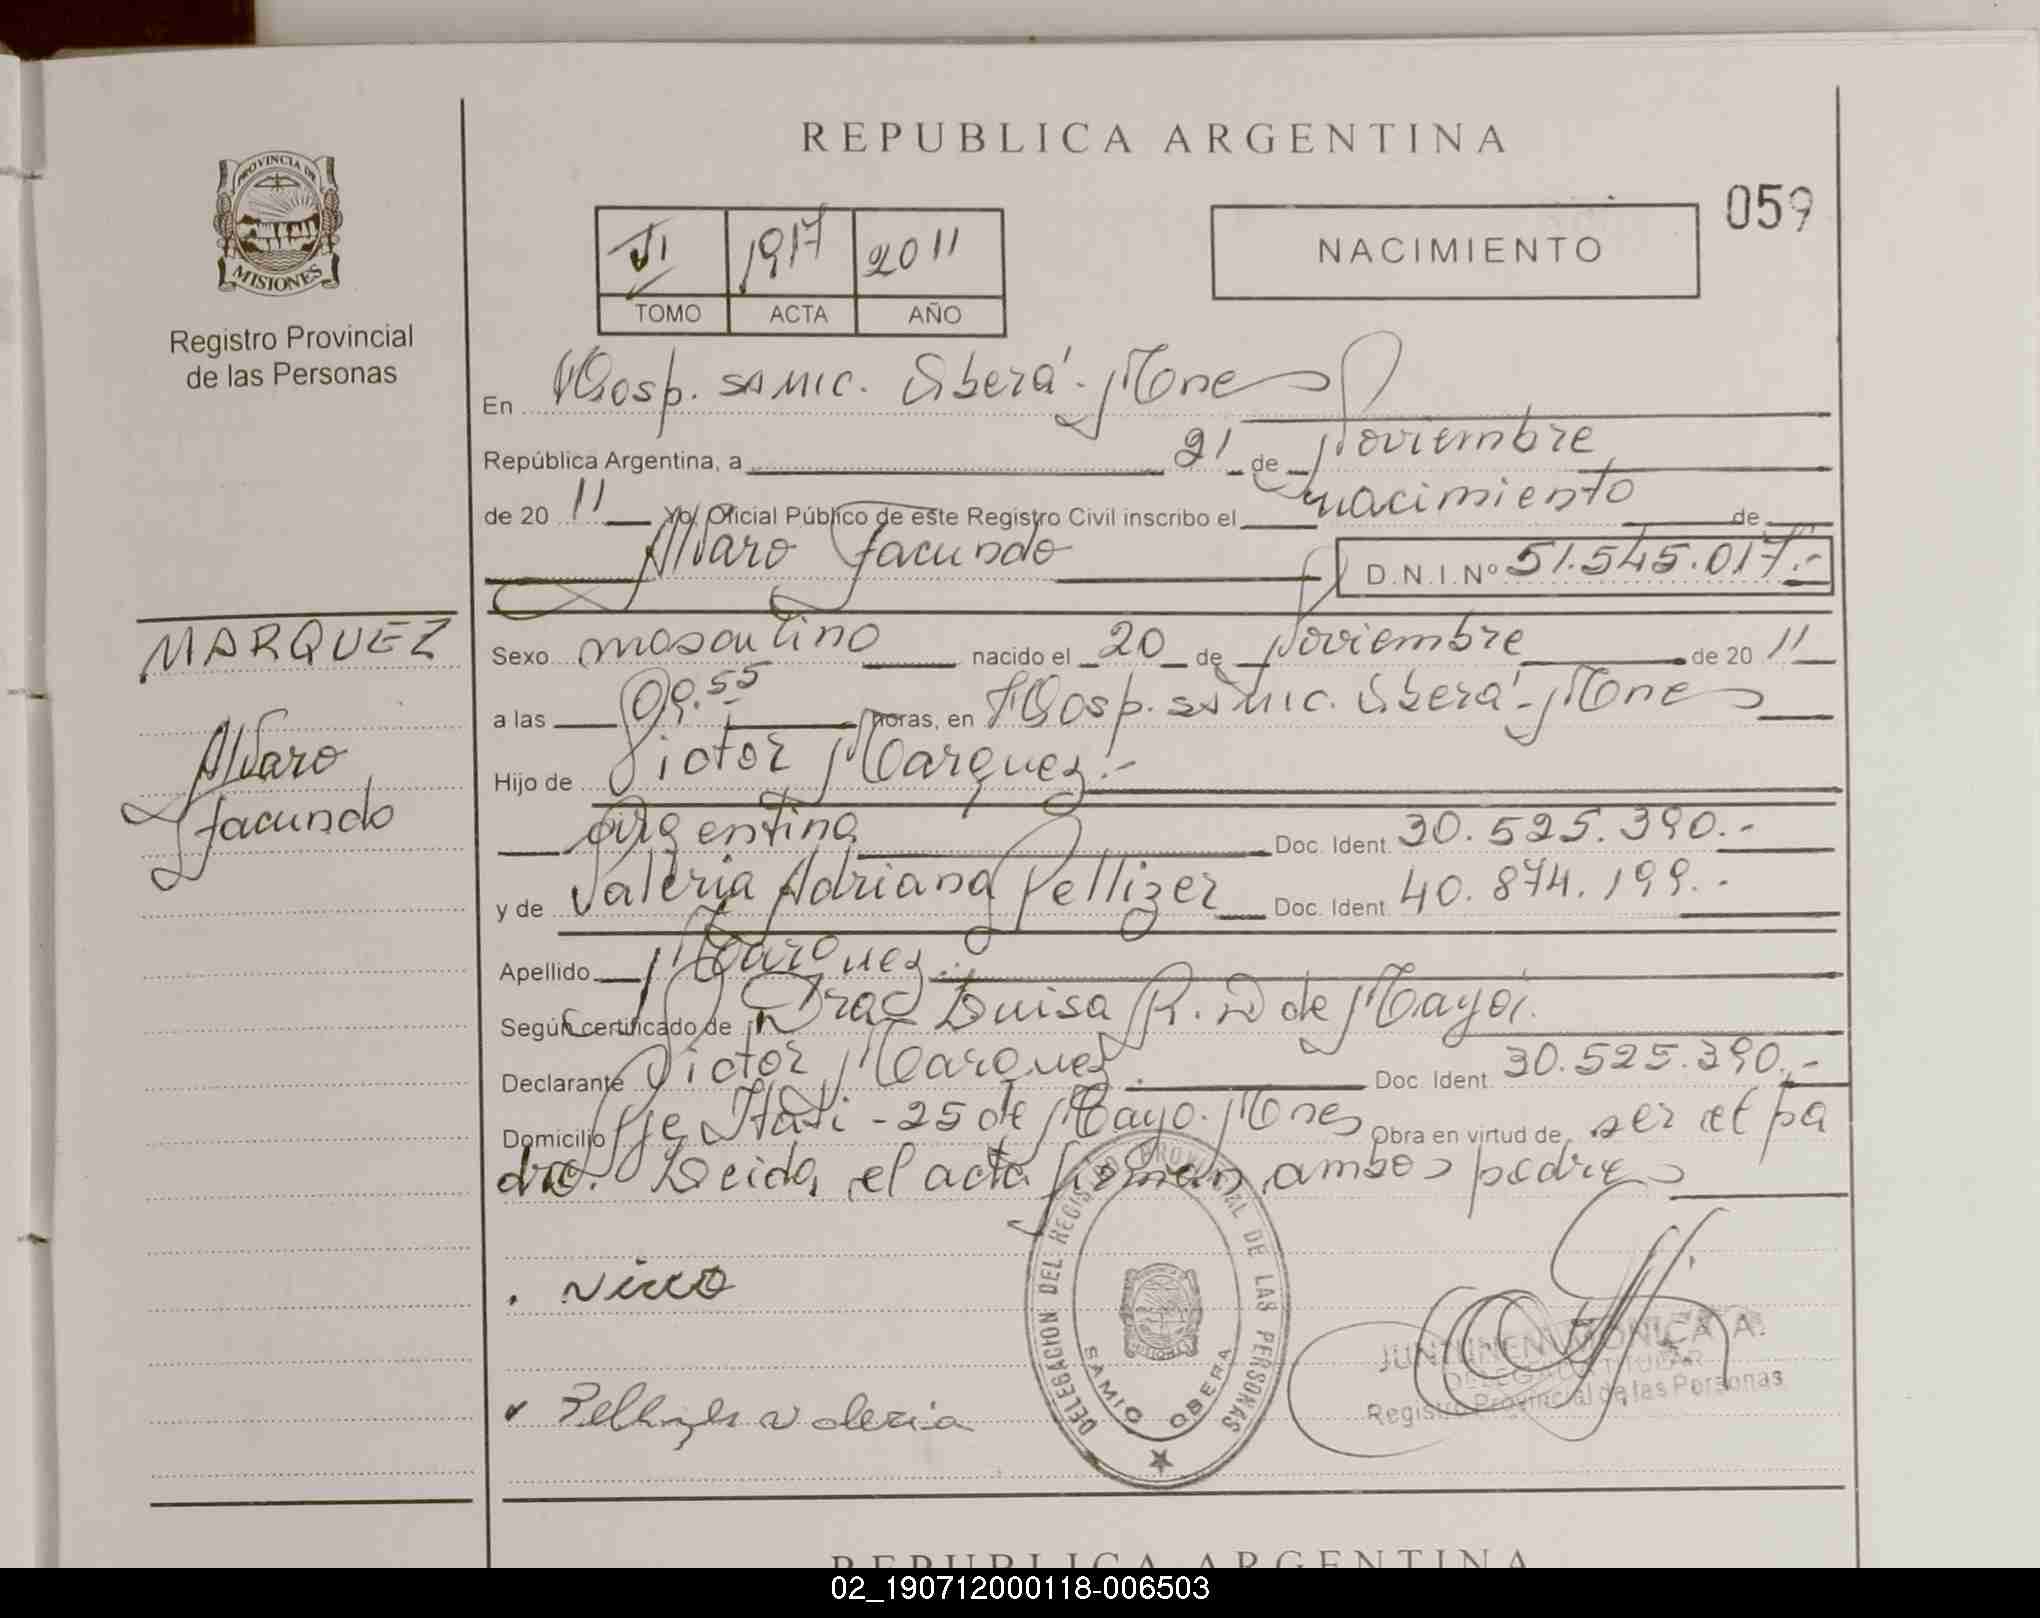 REPUBLICA ARGENTINA
059
PROVINCIA DE
MISIONES
Registro Provincial
de las Personas
VI 1917 2011
TOMO ACTA AÑO
NACIMIENTO
En Hosp. SAMIC. Oberá - Mones
República Argentina, a 21 de Noviembre
de 20 11 Yo, Oficial Público de este Registro Civil inscribo el nacimiento de
Alvaro Facundo D.N.I. Nº 51.545.017.-
MARQUEZ
Alvaro
Facundo
Sexo masculino nacido el 20 de Noviembre de 20 11
a las 09.55 horas, en Hosp. SAMIC. Oberá - Mones
Hijo de Victor Marquez.-
argentina Doc. Ident. 30.525.390.-
y de Valeria Adriana Pellizer Doc. Ident. 40.874.199.-
Apellido Marquez.
Según certificado de Dra Luisa R. D de Mayol.
Declarante Victor Marquez. Doc. Ident. 30.525.390.-
Domicilio Pje Itati - 25 de Mayo. Mones Obra en virtud de ser el pa
dre. Leida el acta firman ambos padres
DELEGACION DEL REGISTRO PROVINCIAL DE LAS PERSONAS
SAMIC OBERA
Valeria
JUNTUNEN MONICA A.
DELEGADA TITULAR
Registro Provincial de las Personas
REPUBLICA ARGENTINA
02_190712000118-006503